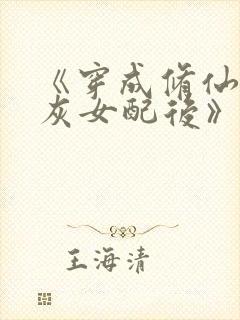 《穿成脩仙
灰女配後》
王海清